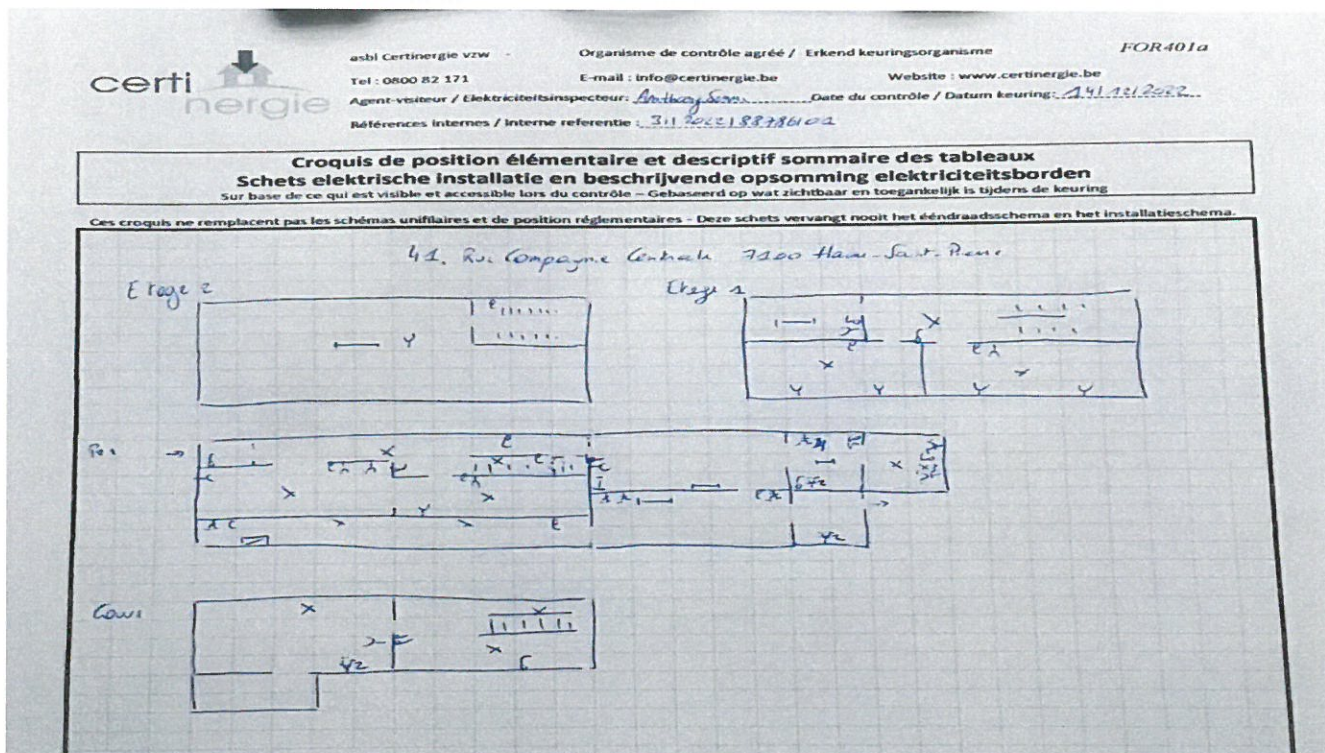 certi
nergie
asbl Certinergie vzw - Organisme de contrôle agréé / Erkend keuringsorganisme FOR401a
Tel : 0800 82 171 E-mail : info@certinergie.be Website : www.certinergie.be
Agent-visiteur / Elektriciteitsinspecteur: Anthony Date du contrôle / Datum keuring: 14/12/2022
Références internes / Interne referentie :
Croquis de position élémentaire et descriptif sommaire des tableaux
Schets elektrische installatie en beschrijvende opsomming elektriciteitsborden
Sur base de ce qui est visible et accessible lors du contrôle – Gebaseerd op wat zichtbaar en toegankelijk is tijdens de keuring
Ces croquis ne remplacent pas les schémas unifilaires et de position réglementaires - Deze schets vervangt nooit het ééndraadsschema en het installatieschema.
41, Rue Compagne Centrale 7100 Haine-Saint-Pierre
Etage 2 Etage 1